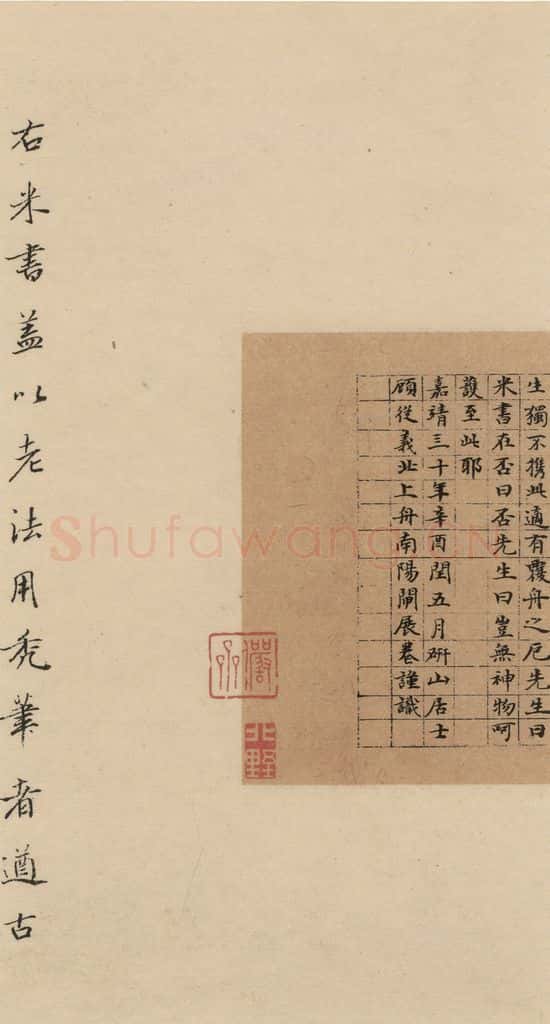 生獨不攜此適有覆舟之厄先生曰
米書在否曰否先生曰豈無神物呵
護至此耶
嘉靖三十年辛酉閏五月研山居士
顧從義北上舟南陽閘展卷謹識
北野
右米書蓋以老法用禿筆者遒古
Shufawang.CN